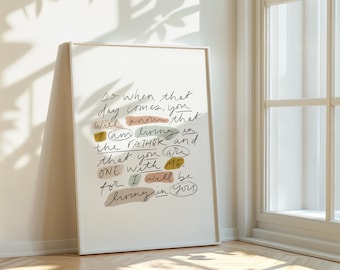 so when that
day comes, you
will know that
I am living in
the FATHER and
that you are
ONE with ME,
for I will be
living in YOU